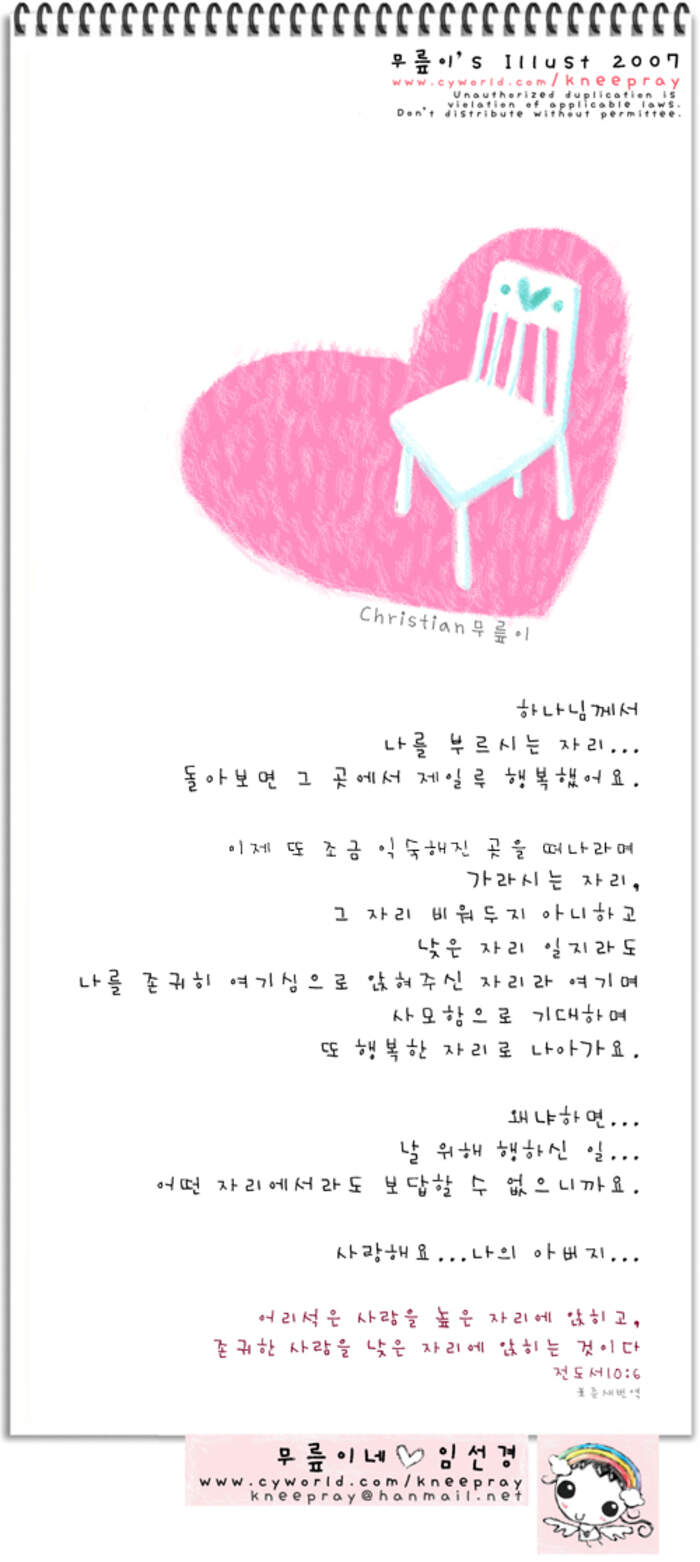 무릎이's Illust 2007
www.cyworld.com/kneepray
Unauthorized duplication is
violation of applicable laws.
Don't distribute without permittee.
Christian무릎이
하나님께서
나를 부르시는 자리...
돌아보면 그 곳에서 제일루 행복했어요.
이제 또 조금 익숙해진 곳을 떠나라며
가라시는 자리,
그 자리 비워두지 아니하고
낮은 자리 일지라도
나를 존귀히 여기심으로 앉혀주신 자리라 여기며
사모함으로 기대하며
또 행복한 자리로 나아가요.
왜냐하면...
날 위해 행하신 일...
어떤 자리에서라도 보답할 수 없으니까요.
사랑해요...나의 아버지...
어리석은 사람을 높은 자리에 앉히고,
존귀한 사람을 낮은 자리에 앉히는 것이다
전도서10:6
표준새번역
무릎이네 임선경
www.cyworld.com/kneepray
kneepray@hanmail.net